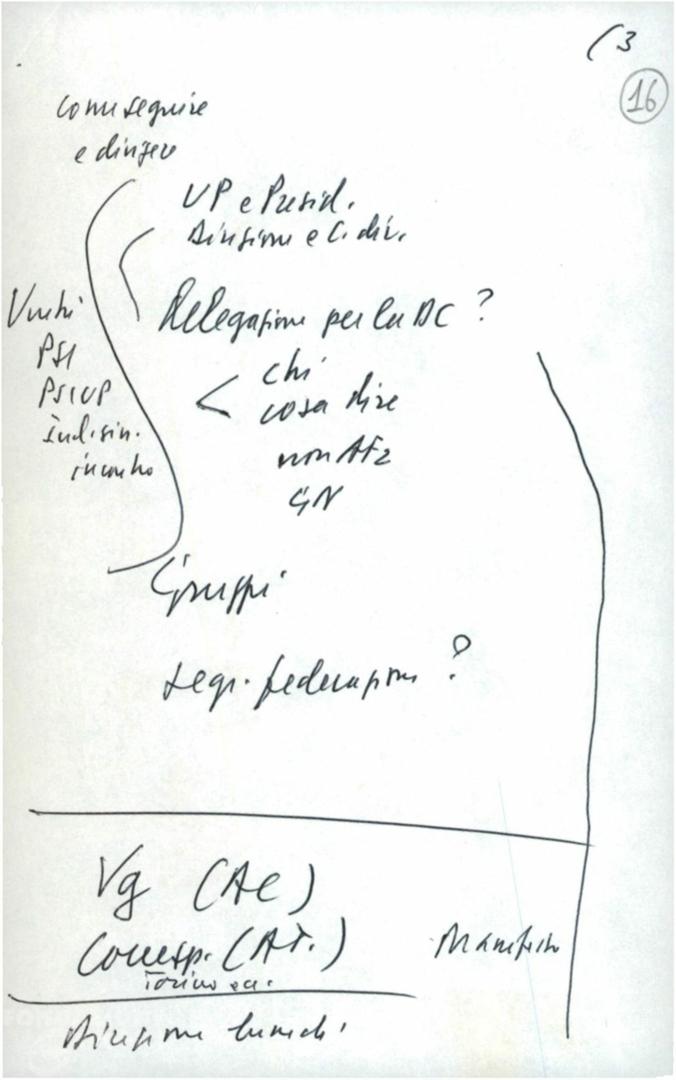 (3
16
come seguire
e dirigere
UP e Presid.
Direzione e C. dir.
Delegazione per la DC ?
chi
cosa dire
non AF2
GN
Vecchi
PSI
PSIUP
ind. sin.
incontro
Gruppi
segr. federazioni ?
Vg (Ae)
Corresp. (At.)
Torino ecc.
Manifesto
Direzione lunedì